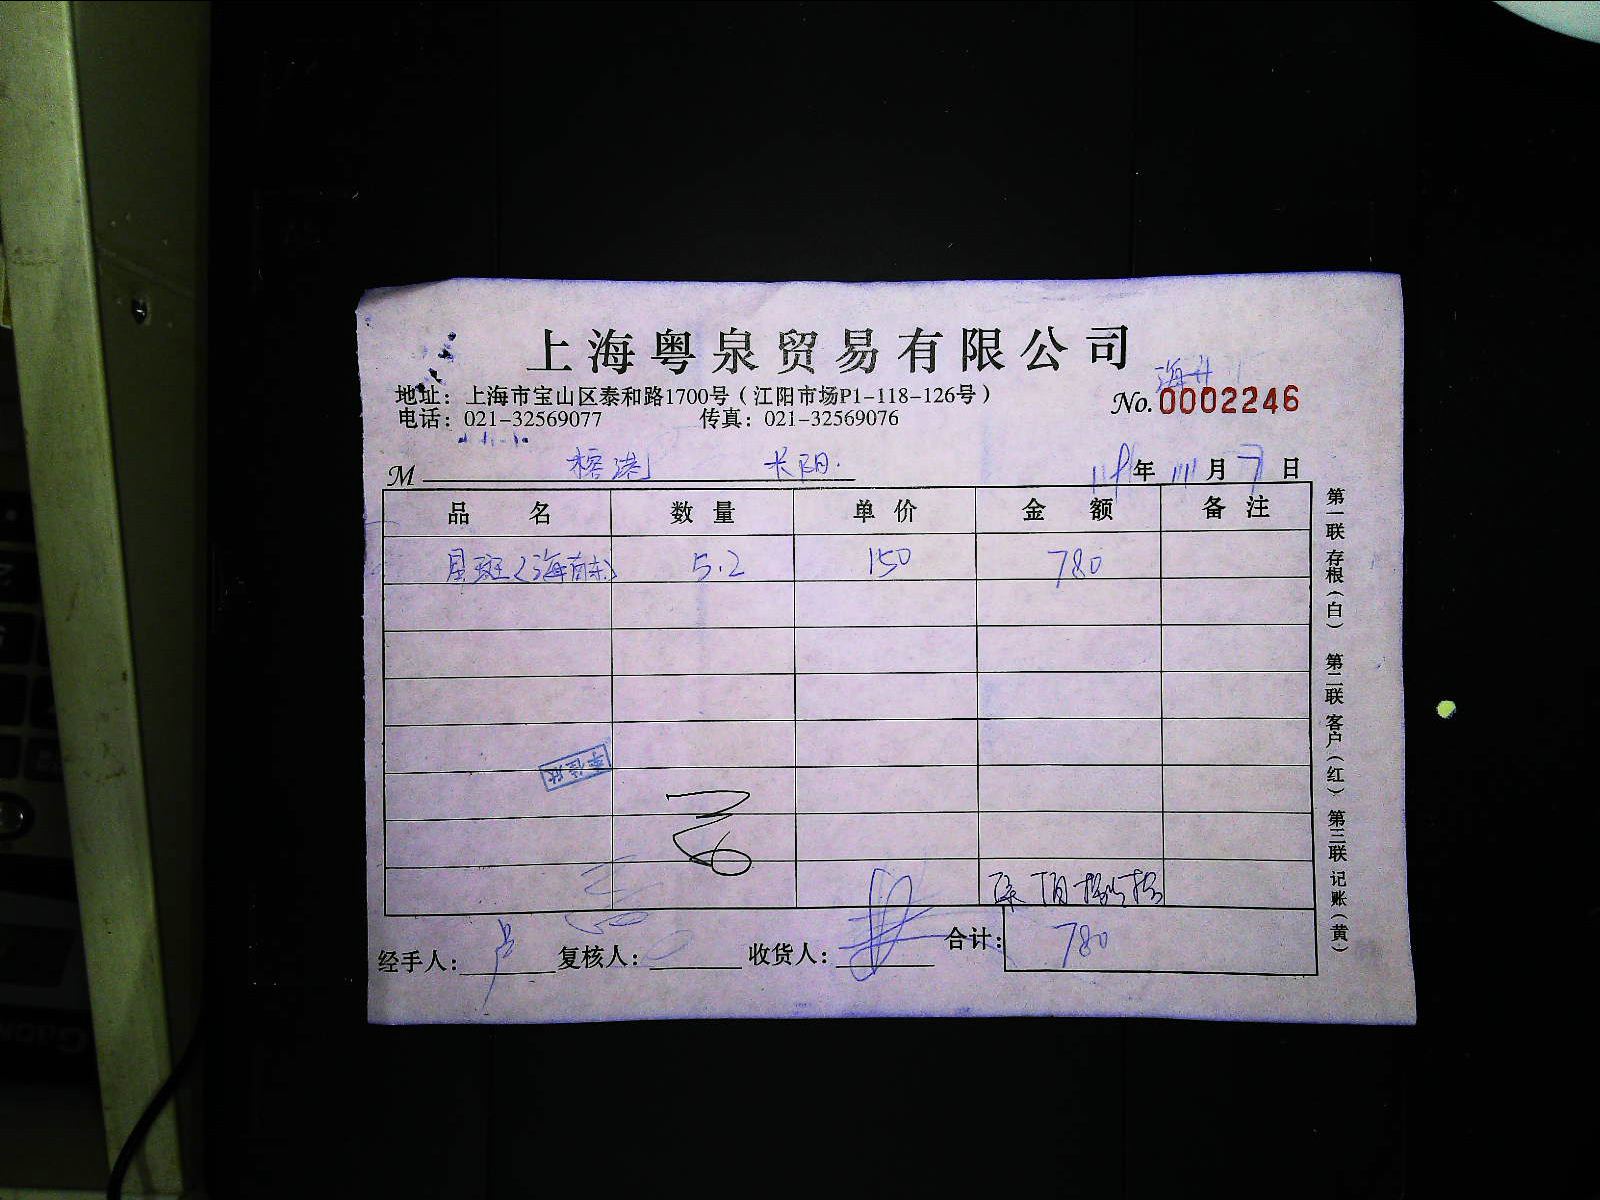 上海粤泉贸易有限公司
地址：上海市宝山区泰和路1700号（江阳市场P1-118-126号）
No.0002246
电话：021-32569077 传真：021-32569076
M 榕港 长阳. 年 月 7 日
品 名 数 量 单 价 金 额 备 注
星斑（海南东） 5.2 150 780
李佳欣
经手人： 卢 复核人： 收货人： 合计： 780
第一联 存根（白） 第二联 客户（红） 第三联 记账（黄）